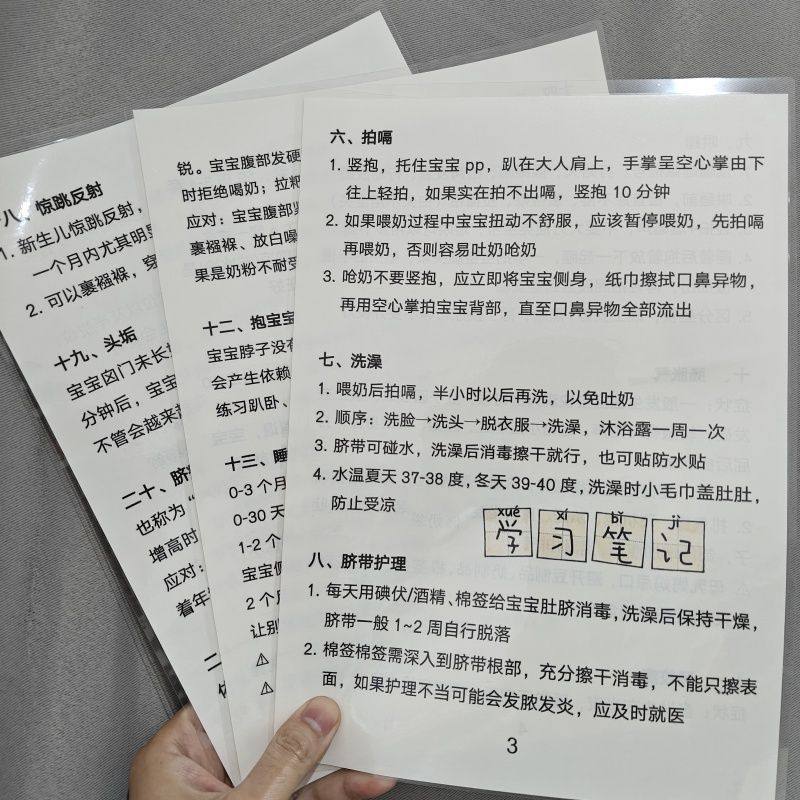 八、惊跳反射
1. 新生儿惊跳反射，
一个月内尤其明显
2. 可以裹襁褓，穿
十九、头垢
宝宝囟门未长
分钟后，宝宝
不管会越来越
二十、脐
也称为“
增高时
应对：
着年
二
锐。宝宝腹部发硬
时拒绝喝奶；拉粑
应对：宝宝腹部
裹襁褓、放白噪
果是奶粉不耐受
十二、抱宝宝
宝宝脖子没有
会产生依赖
练习趴卧、
十三、睡
0-3 个月
0-30 天
1-2 个
宝宝
2 个月
让别
⚠
⚠
六、拍嗝
1. 竖抱，托住宝宝 pp，趴在大人肩上，手掌呈空心掌由下
往上轻拍，如果实在拍不出嗝，竖抱 10 分钟
2. 如果喂奶过程中宝宝扭动不舒服，应该暂停喂奶，先拍嗝
再喂奶，否则容易吐奶呛奶
3. 呛奶不要竖抱，应立即将宝宝侧身，纸巾擦拭口鼻异物，
再用空心掌拍宝宝背部，直至口鼻异物全部流出
七、洗澡
1. 喂奶后拍嗝，半小时以后再洗，以免吐奶
2. 顺序：洗脸→洗头→脱衣服→洗澡，沐浴露一周一次
3. 脐带可碰水，洗澡后消毒擦干就行，也可贴防水贴
4. 水温夏天 37-38 度，冬天 39-40 度，洗澡时小毛巾盖肚肚，
防止受凉
xué xí bǐ jì
学习笔记
八、脐带护理
1. 每天用碘伏/酒精、棉签给宝宝肚脐消毒，洗澡后保持干燥，
脐带一般 1~2 周自行脱落
2. 棉签棉签需深入到脐带根部，充分擦干消毒，不能只擦表
面，如果护理不当可能会发脓发炎，应及时就医
3